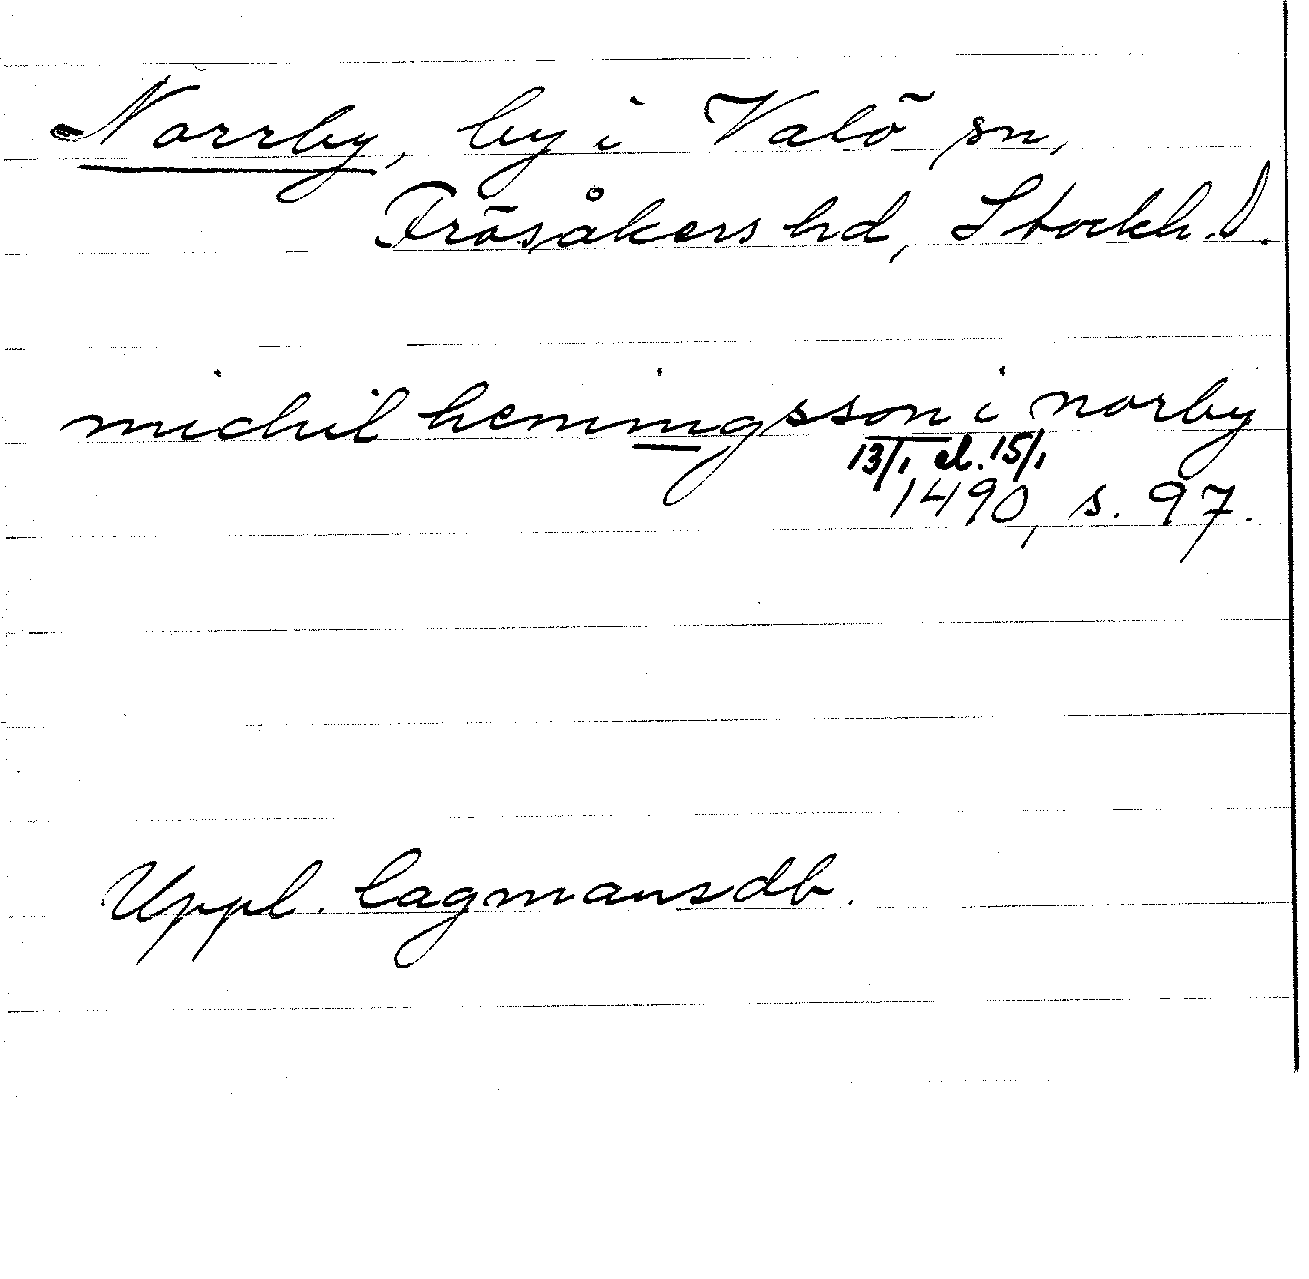 Norrby, by i Valö sn,
Frösåkers hd, Stockh. l.
michil heningsson i norby
13/1 el. 15/1
1490, s. 97.
Uppl. lagmansdb.